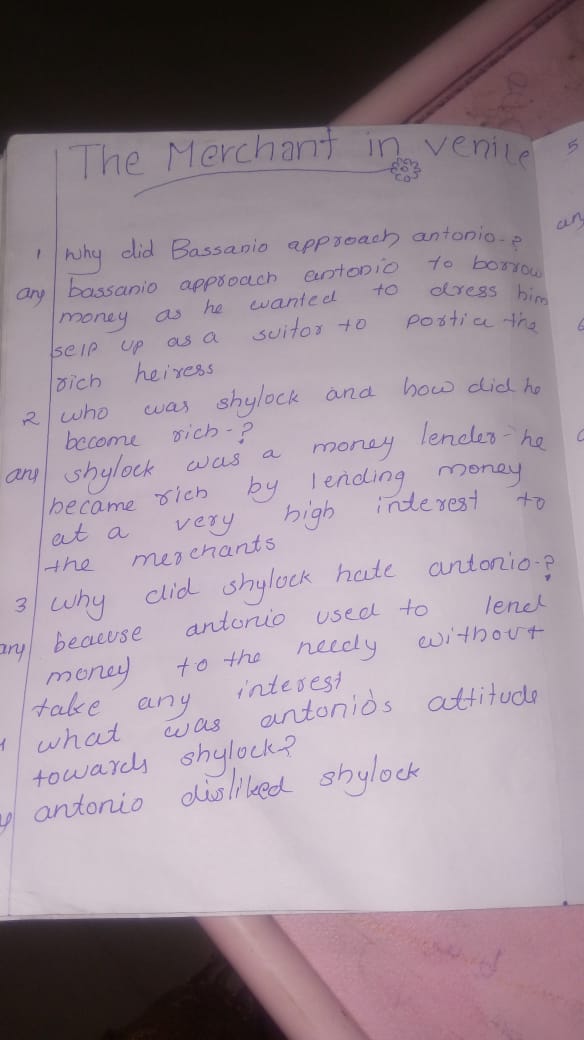 The Merchant in venice
1 why did Bassanio approach antonio-?
any bassanio approach antonio to borrow
money as he wanted to dress him
selp up as a suitor to postia the
rich heiress
2 who was shylock and how did he
become rich-?
any shylock was a money lender-he
became rich by lending money
at a very high interest to
the merchants
3 why did shylock hate antonio-?
any beacuse antonio used to lend
money to the needy without
take any interest
what was antonio's attitude
towards shylock?
antonio disliked shylock
5
any